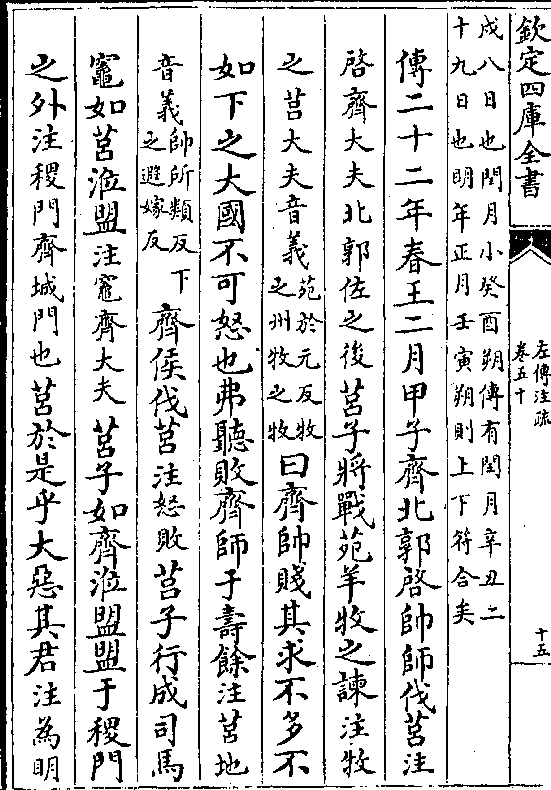 欽定四庫全書
左傳注疏
卷五十
十五
戍八日也閏月小癸酉朔傳有閏月辛丑二
十九日也明年正月壬寅朔則上下符合矣
傳二十二年春王二月甲子齊北郭啓帥師伐莒注
啓齊大夫北郭佐之後莒子將戰苑羊牧之諫注牧
之莒大夫音義苑於元反牧
之州牧之牧曰齊帥賤其求不多不
如下之大國不可怒也弗聽敗齊師于壽餘注莒地
音義帥所類反下
之遐嫁反齊侯伐莒注怒敗莒子行成司馬
竈如莒涖盟注竈齊大夫莒子如齊涖盟盟于稷門
之外注稷門齊城門也莒於是乎大惡其君注為明